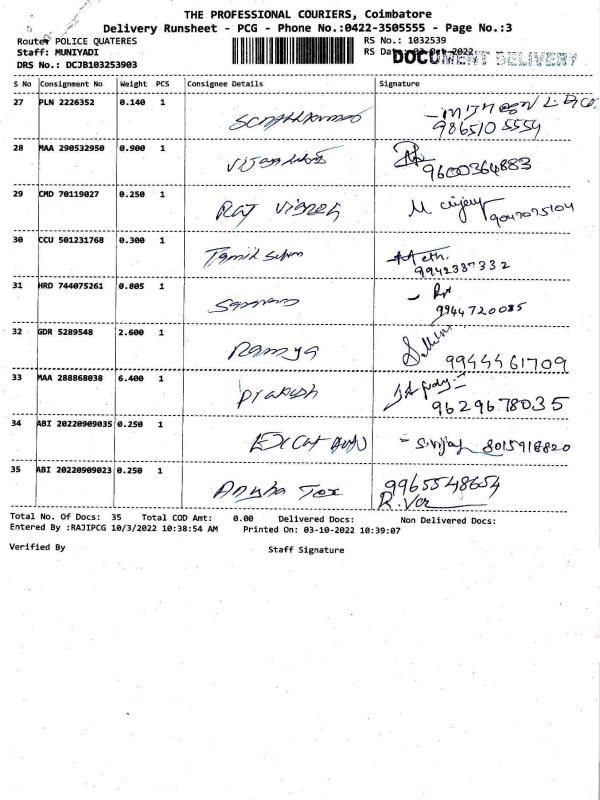 THE PROFESSIONAL COURIERS, Coimbatore
Delivery Runsheet - PCG - Phone No.:0422-3505555 - Page No.:3
Route: POLICE QUATERES
RS No.: 1032539
Staff: MUNIYADI
RS Date: 03 Oct 2022
DOCUMENT DELIVERY
DRS No.: DCJB103253903
S No Consignment No Weight PCS Consignee Details Signature
27 PLN 2226352 0.140 1
9865105554
28 MAA 290532950 0.900 1
9600364883
29 CMD 70119027 0.250 1 Raj Vignesh
9047075104
30 CCU 501231768 0.300 1 Tamil Selvan
9942387332
31 HRD 744075261 0.805 1
9944720085
32 GDR 5289548 2.600 1 Ramya
9944461709
33 MAA 288868038 6.400 1 Prakash
9629678035
34 ABI 20220909035 0.250 1
S.Vijay 8015918820
35 ABI 20220909023 0.250 1 Anusha Tex 9965548654
Total No. Of Docs: 35 Total COD Amt: 0.00 Delivered Docs: Non Delivered Docs:
Entered By :RAJIPCG 10/3/2022 10:38:54 AM Printed On: 03-10-2022 10:39:07
Verified By
Staff Signature